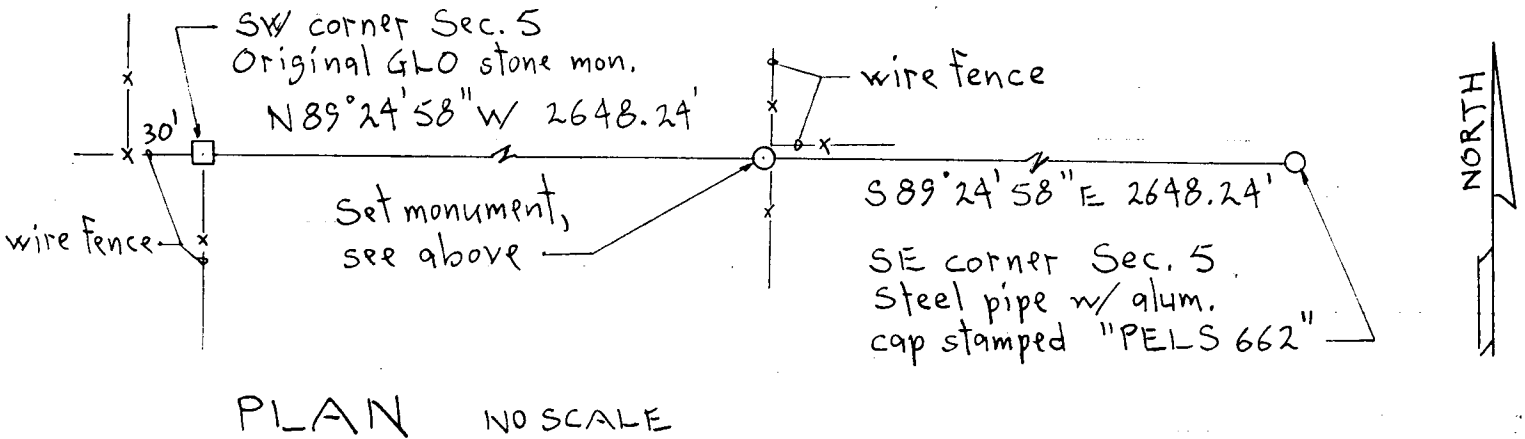 SW corner Sec. 5
Original GLO stone mon.
N 89°24'58" W 2648.24'
30'
wire fence
wire fence
Set monument,
see above
S 89°24'58" E 2648.24'
SE corner Sec. 5
Steel pipe w/ alum.
cap stamped "PELS 662"
NORTH
PLAN NO SCALE